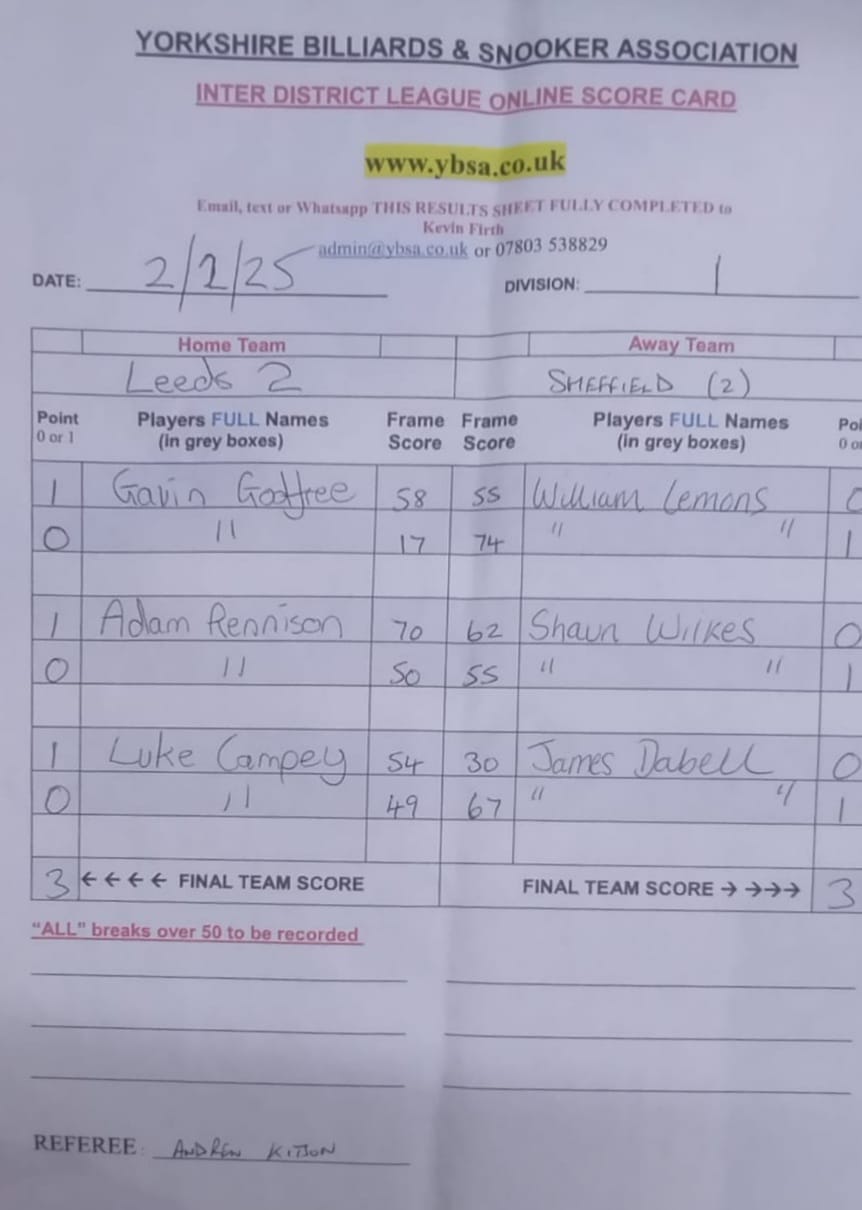 YORKSHIRE BILLIARDS & SNOOKER ASSOCIATION
INTER DISTRICT LEAGUE ONLINE SCORE CARD
www.ybsa.co.uk
Email, text or Whatsapp THIS RESULTS SHEET FULLY COMPLETED to
Kevin Firth
admin@ybsa.co.uk or 07803 538829
DATE: 2/2/25 DIVISION: 1
Home Team Away Team
Leeds 2 SHEFFIELD (2)
Point Players FULL Names Frame Frame Players FULL Names Poi
0 or 1 (in grey boxes) Score Score (in grey boxes) 0 or
1 Gavin Godfree 58 55 William Lemons 0
0 " 17 74 " " 1
1 Adam Rennison 70 62 Shaun Wilkes 0
0 " 50 55 " " 1
1 Luke Campey 54 30 James Dabell 0
0 " 49 67 " " 1
3 ← ← ← ← FINAL TEAM SCORE FINAL TEAM SCORE → →→→ 3
“ALL” breaks over 50 to be recorded
REFEREE: ANDREW KITSON